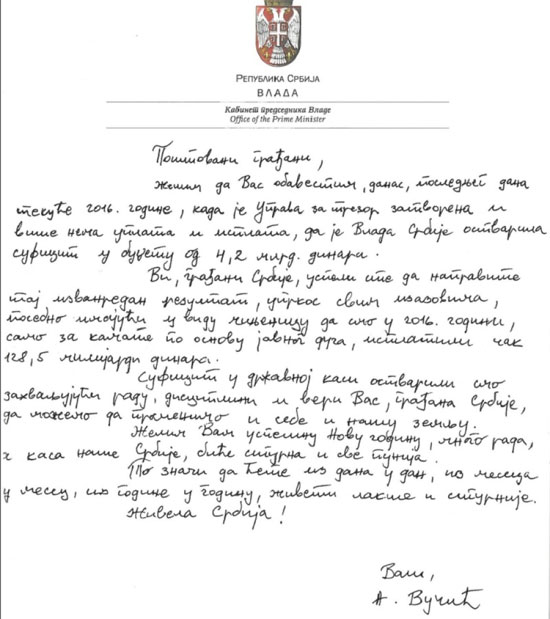 Република Србија
ВЛАДА
Кабинет председника Владе
Office of the Prime Minister
Поштовани грађани,
желим да Вас обавестим, данас, последњег дана
текуће 2016. године, када је Управа за трезор затворена и
више нема уплата и исплата, да је Влада Србије остварила
суфицит у буџету од 4,2 млрд. динара.
Ви, грађани Србије, успели сте да направите
тај изванредан резултат, упркос свим изазовима,
посебно имајући у виду чињеницу да смо у 2016. години,
само за камате по основу јавног дуга, исплатили чак
128,5 милијарди динара.
Суфицит у државној каси остварили смо
захваљујући раду, дисциплини и вери Вас, грађана Србије,
да можемо да променимо и себе и нашу земљу.
Желим Вам успешну Нову годину, много рада,
а каса наше Србије, биће сигурна и све пунија.
То значи да ћете из дана у дан, из месеца
у месец, из године у годину, живети лакше и сигурније.
Живела Србија!
Ваш,
А. Вучић